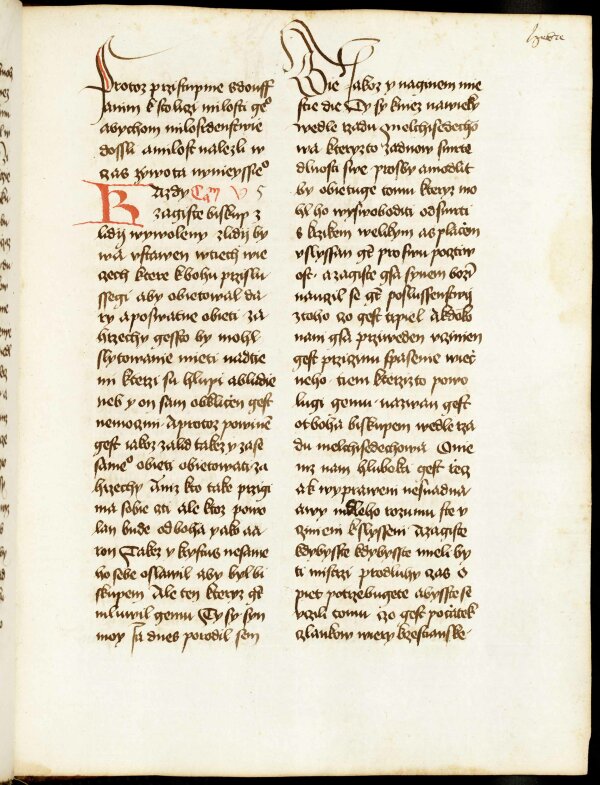 Protoz přistupme sdouff
aním k stolici milosti geº
abychom milosrdenstwie
dossli a milost nalezli w
czas zywota nynieyssieº
Kazdy Cam V 5
zagiste biskup z
lidij wywoleny z lidij by
wa ustawen w tiech wie
czech ktere k bohu przislu
ssegi aby obietowal da
ry a poswatne obieti za
hrzechy gessto by mohl
slytowanie mieti nad tie
mi kterzi su hlupi a bludie
neb y on sam obkliczen gest
nemoczmi A protoz powinen
gest iakoz za lid takez y za se
sameº obieti obietowati za
hrzechy Aniz kto take przigi
ma sobie czti ale ktoz powo
lan bude od boha yako aa
ron Takez y kristus ne sam
ho sebe oslawil aby byl bi
skupem Ale ten kteryz gt
mluwil gemu Ty sy syn
moy Ja dnes porodil sem
tie Jakoz y na ginem mie
stie die Ty sy kniez na wieky
wedle rzadu Melchisedecho
wa kteryzto za dnow smrte
dlnosti swe prosby a modlit
by obietuge tomu kteryz mo
hl ho wyswoboditi od smrti
s krzikem welikym a s placzem
uslyssan gt pro swu pocztiw
ost A zagiste gsa synem bozim
nauczil se gt poslussenstwij
z toho czo gest trpiel A dokō
nam gsa przyweden uczinien
gest przyczinu spasenie wiecz
neho tiem kterzizto powo
lugi gemu nazwan gest
ot boha biskupem wedle rza
du melchisedechowa O nie
mz nam hluboka gest rzecz
a k wyprawenie nesnadna
a wy mdleho rozumu ste v
czinieni k slysseni A zagiste
kdybysste kdybysste mieli by
ti mistrzi pro dluhy czas o
piet potrzebugete abysste se
uczili tomu czo gest poczatek
czlankow wiery krzestianske